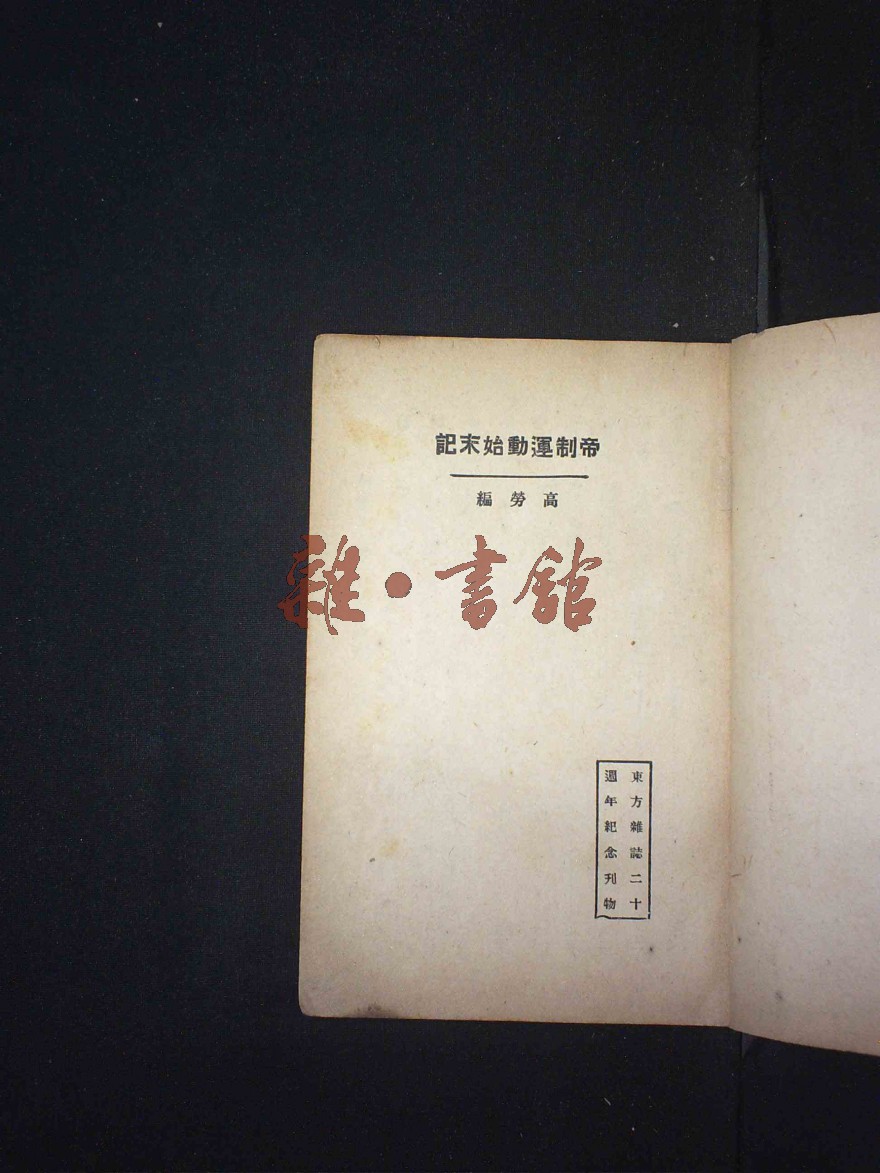 帝制運動始末記
高勞編
雜·書館
東方雜誌二十
週年紀念刊物